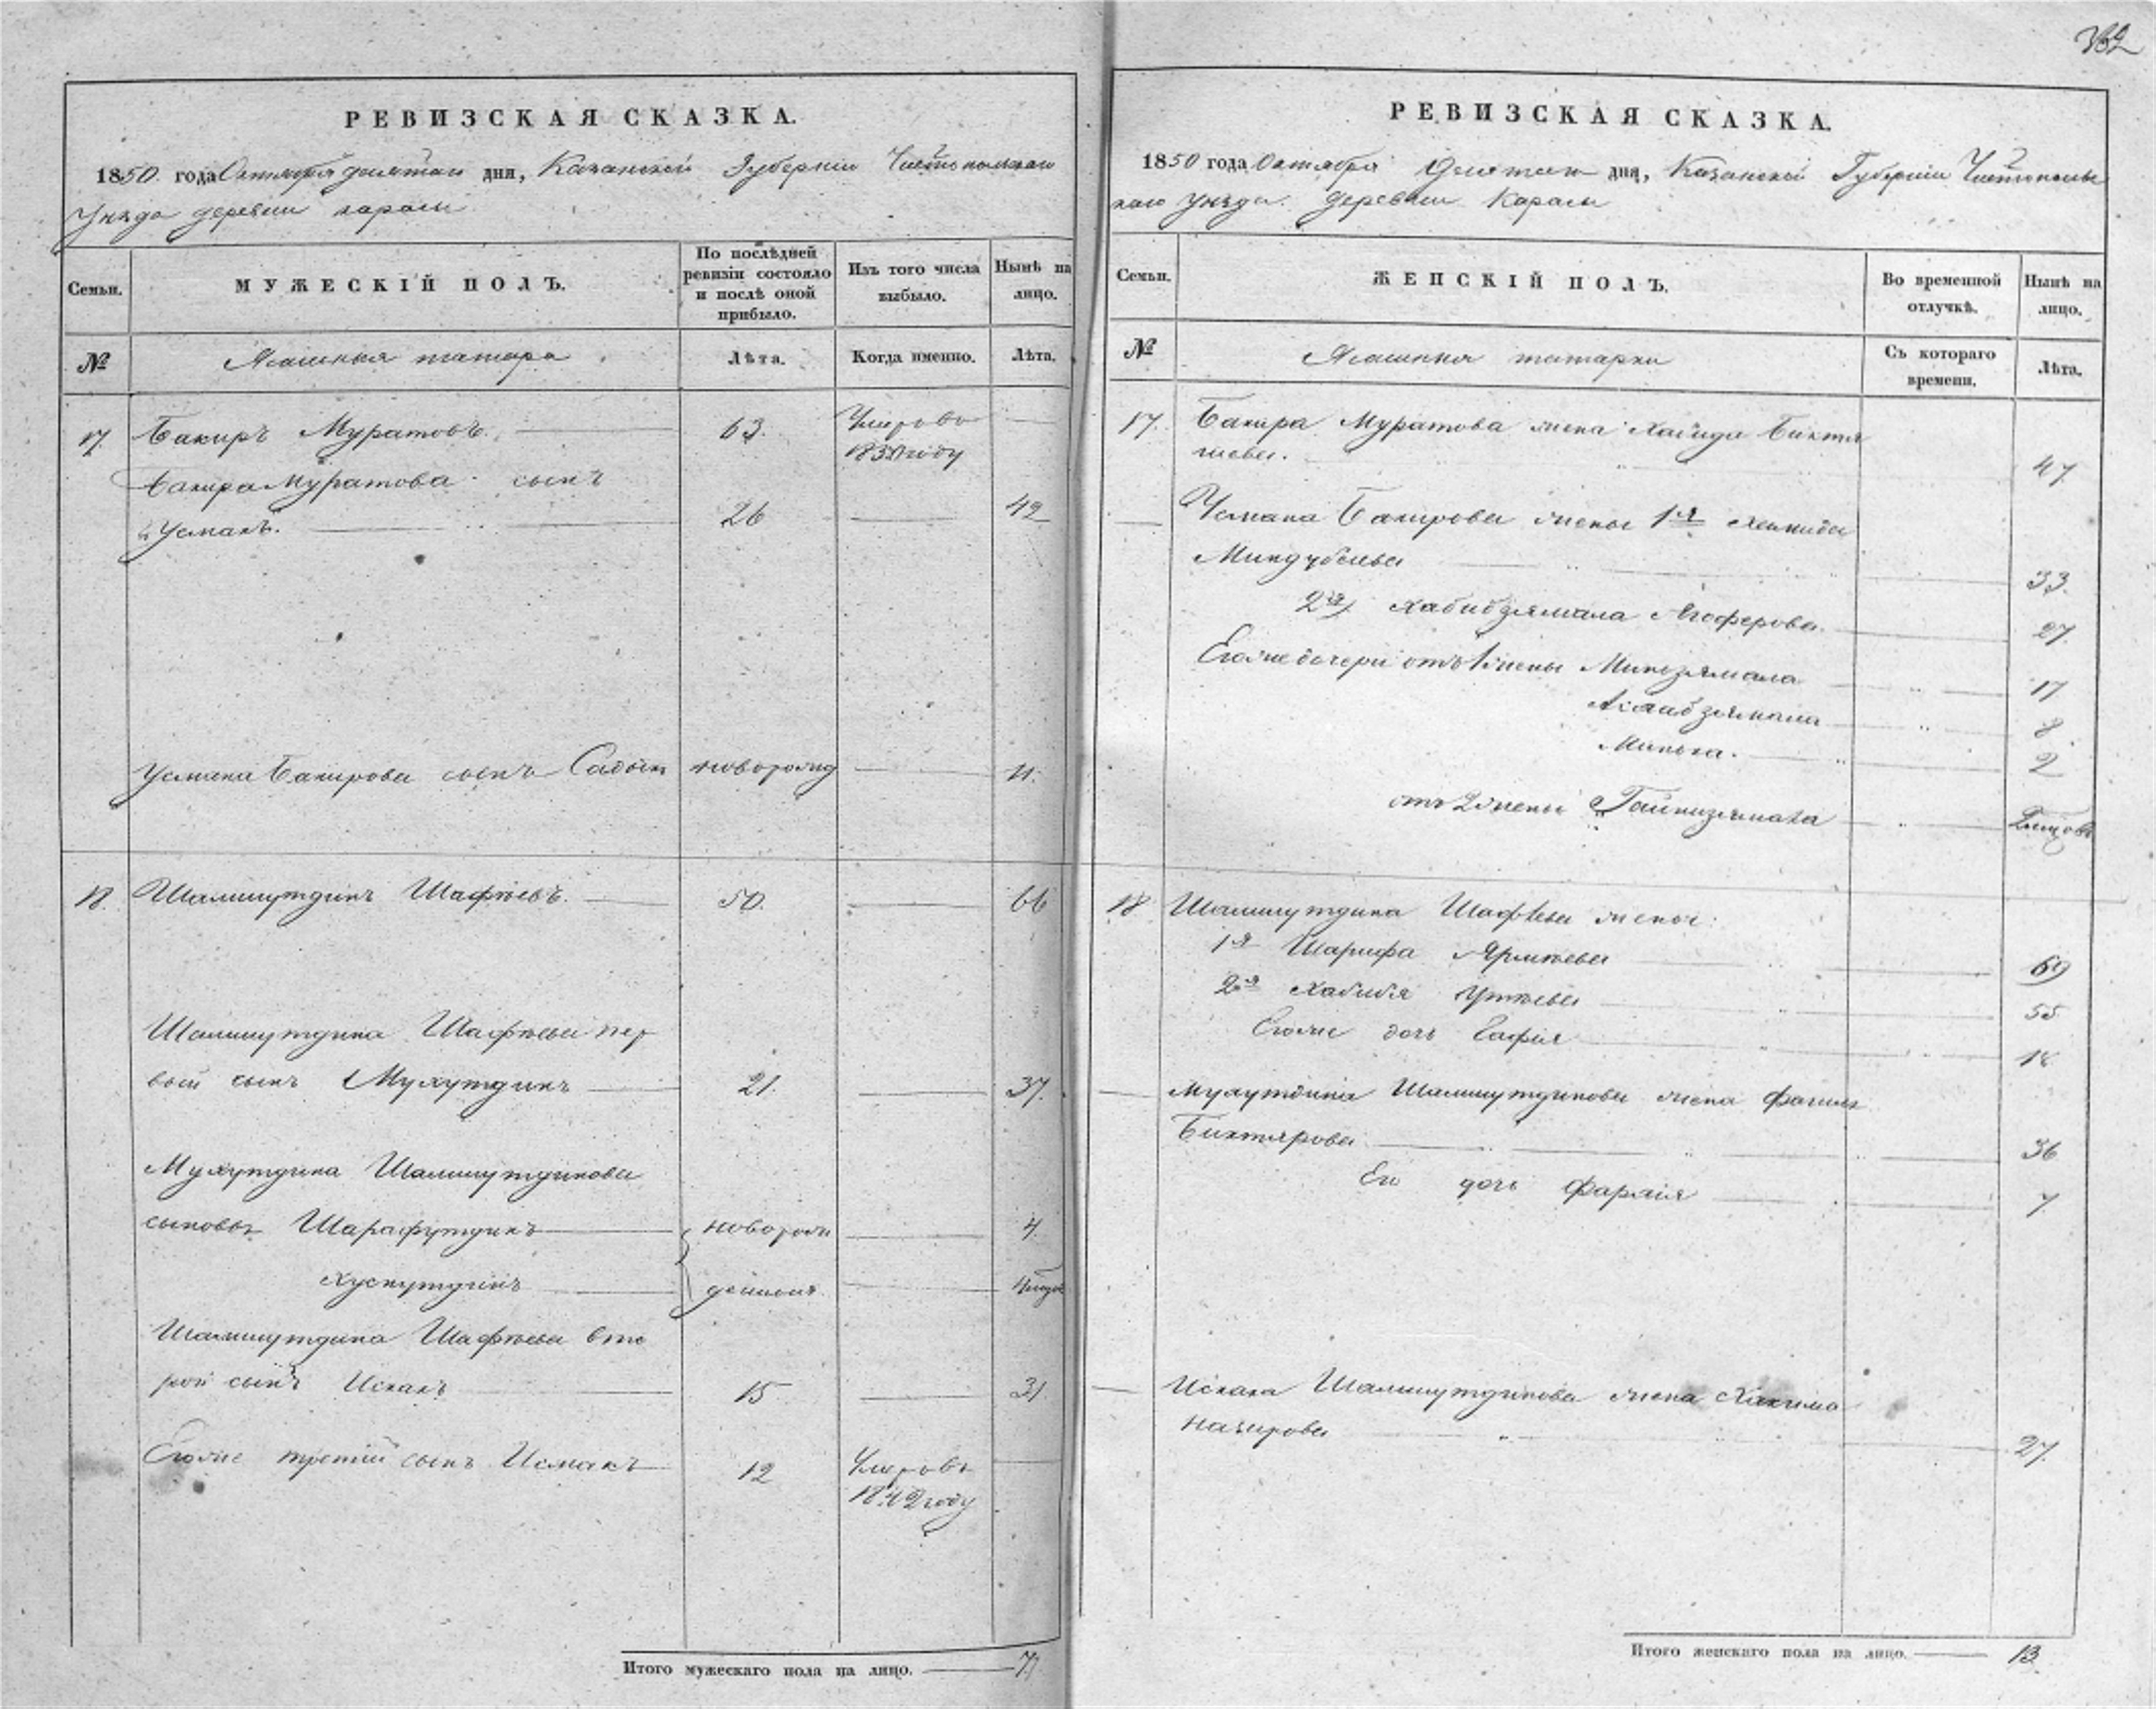 РЕВИЗСКАЯ СКАЗКА.
1850 года Октября девятаго дня, Казанской Губернии Чистопольскаго
Уезда деревни
Семьи. МУЖЕСКІЙ ПОЛЪ. По послѣдней ревизіи состояло и послѣ оной прибыло. Изъ того числа выбыло. Нынѣ на лицо.
№ Ясашныя татара Лѣта. Когда именно. Лѣта.
17. Бакиръ Муратовъ. 63. Умеръ въ
году
Бакира Муратова сынъ
Усманъ. 26 42
Усмана Бакирова сынъ Садыкъ новорожд 11.
18. Шамшутдинъ Шафѣевъ. 50. 66
Шамшутдина Шафѣева пер
вой сынъ Мухутдинъ 21. 37.
Мухутдина Шамшутдинова
сыновья Шарафутдинъ новорож 4
Хуснутдинъ денныя
Шамшутдина Шафѣева вто
рой сынъ Исхакъ 15 31.
Егоже третій сынъ Исмакъ 12 Умеръ въ
1842 году
Итого мужескаго пола на лицо. 7.
382
РЕВИЗСКАЯ СКАЗКА.
1850 года Октября девятаго дня, Казанской Губерніи Чистополь
скаго Уезда. деревни
Семьи. ЖЕНСКІЙ ПОЛЪ. Во временной отлучкѣ. Нынѣ на лицо.
№ Ясашныя татарки Съ котораго времени. Лѣта.
17. Бакира Муратова жена
47.
Усмана Бакирова жены 1я
33.
2я Хабибзямала 27.
Егоже дочери отъ 1 жены Минзямала 17
8.
2
отъ 2 жены Гайнизямала
18 Шамшутдина Шафѣева жены:
1я Шарифа 69
2я Хабибя 55
Егоже дочь Сафія 18
Мухутдина Шамшутдинова жена
Биктярова 36
Его дочь 7
Исхака Шамшутдинова жена Хакима
Назирова 27.
Итого женскаго пола на лицо. 13.